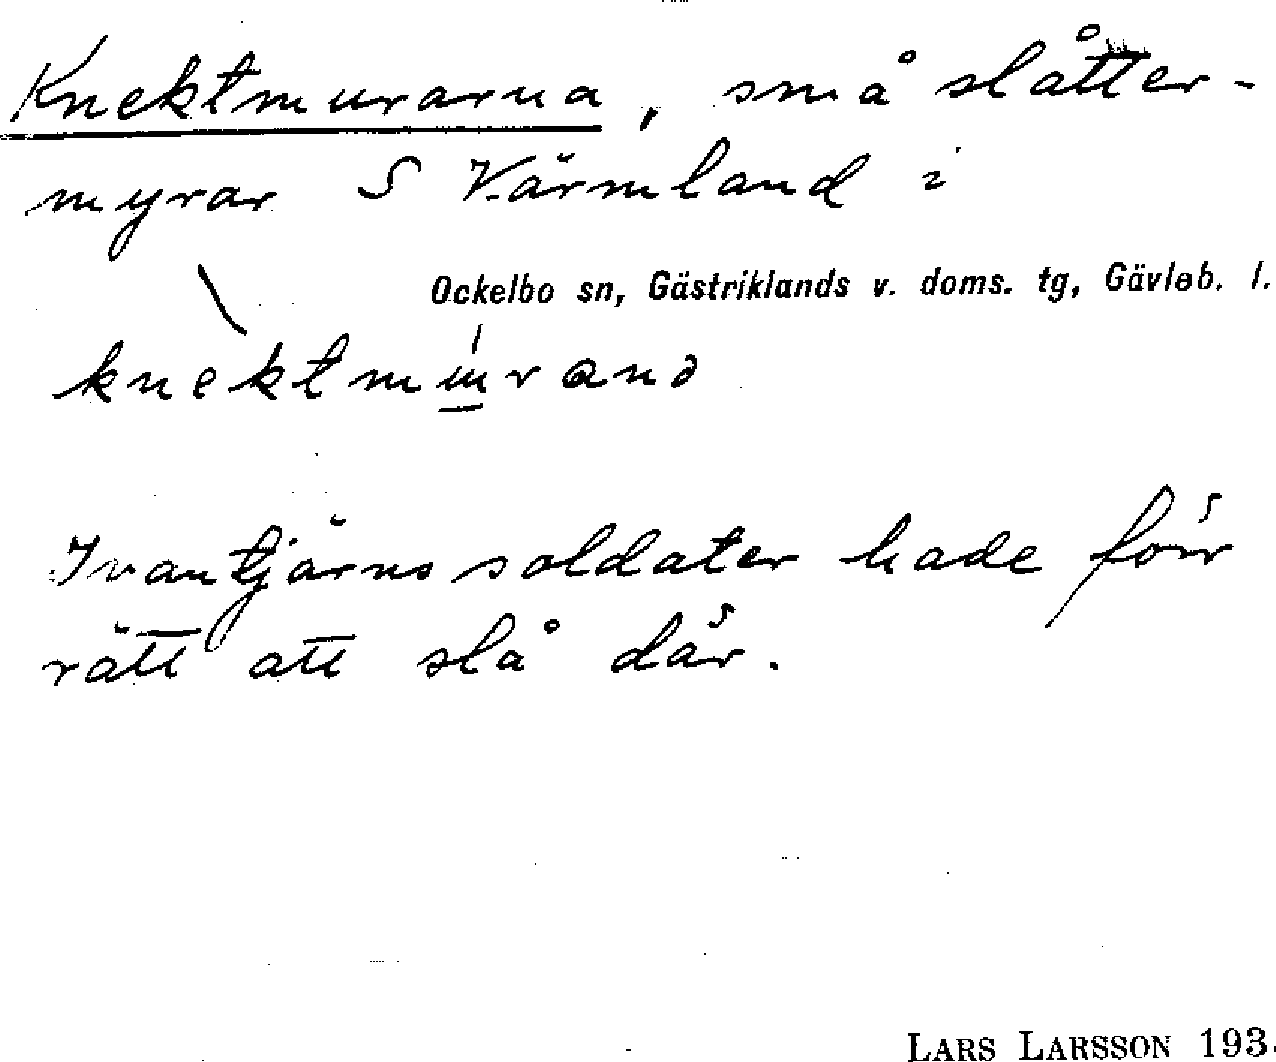 Knektmurarna, små slåtter-
myrar S Värmland i
Ockelbo sn, Gästriklands v. doms. tg, Gävleb. l.
knektmurana
Ivantjärns soldater hade förr
rätt att slå där.
LARS LARSSON 193